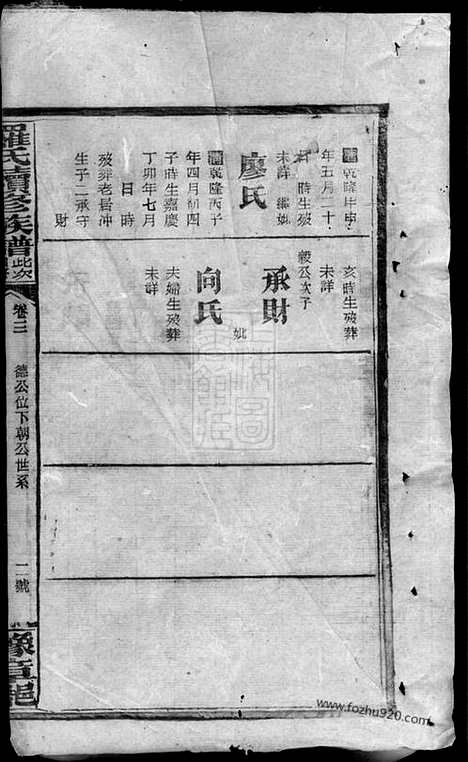 清乾隆甲申
年五月二十
日 時生歿
未詳 繼妣
廖氏
清乾隆丙子
年四月初四
子時生嘉慶
丁卯年七月
日時
歿葬老居沖
生子二承守
財
亥時生歿葬
未詳
毅公次子
承財
妣
向氏
夫婦生歿葬
未詳
羅氏續修族譜
此次
卷三
德公位下朝公世系
二號
豫章
www.fozhu920.com